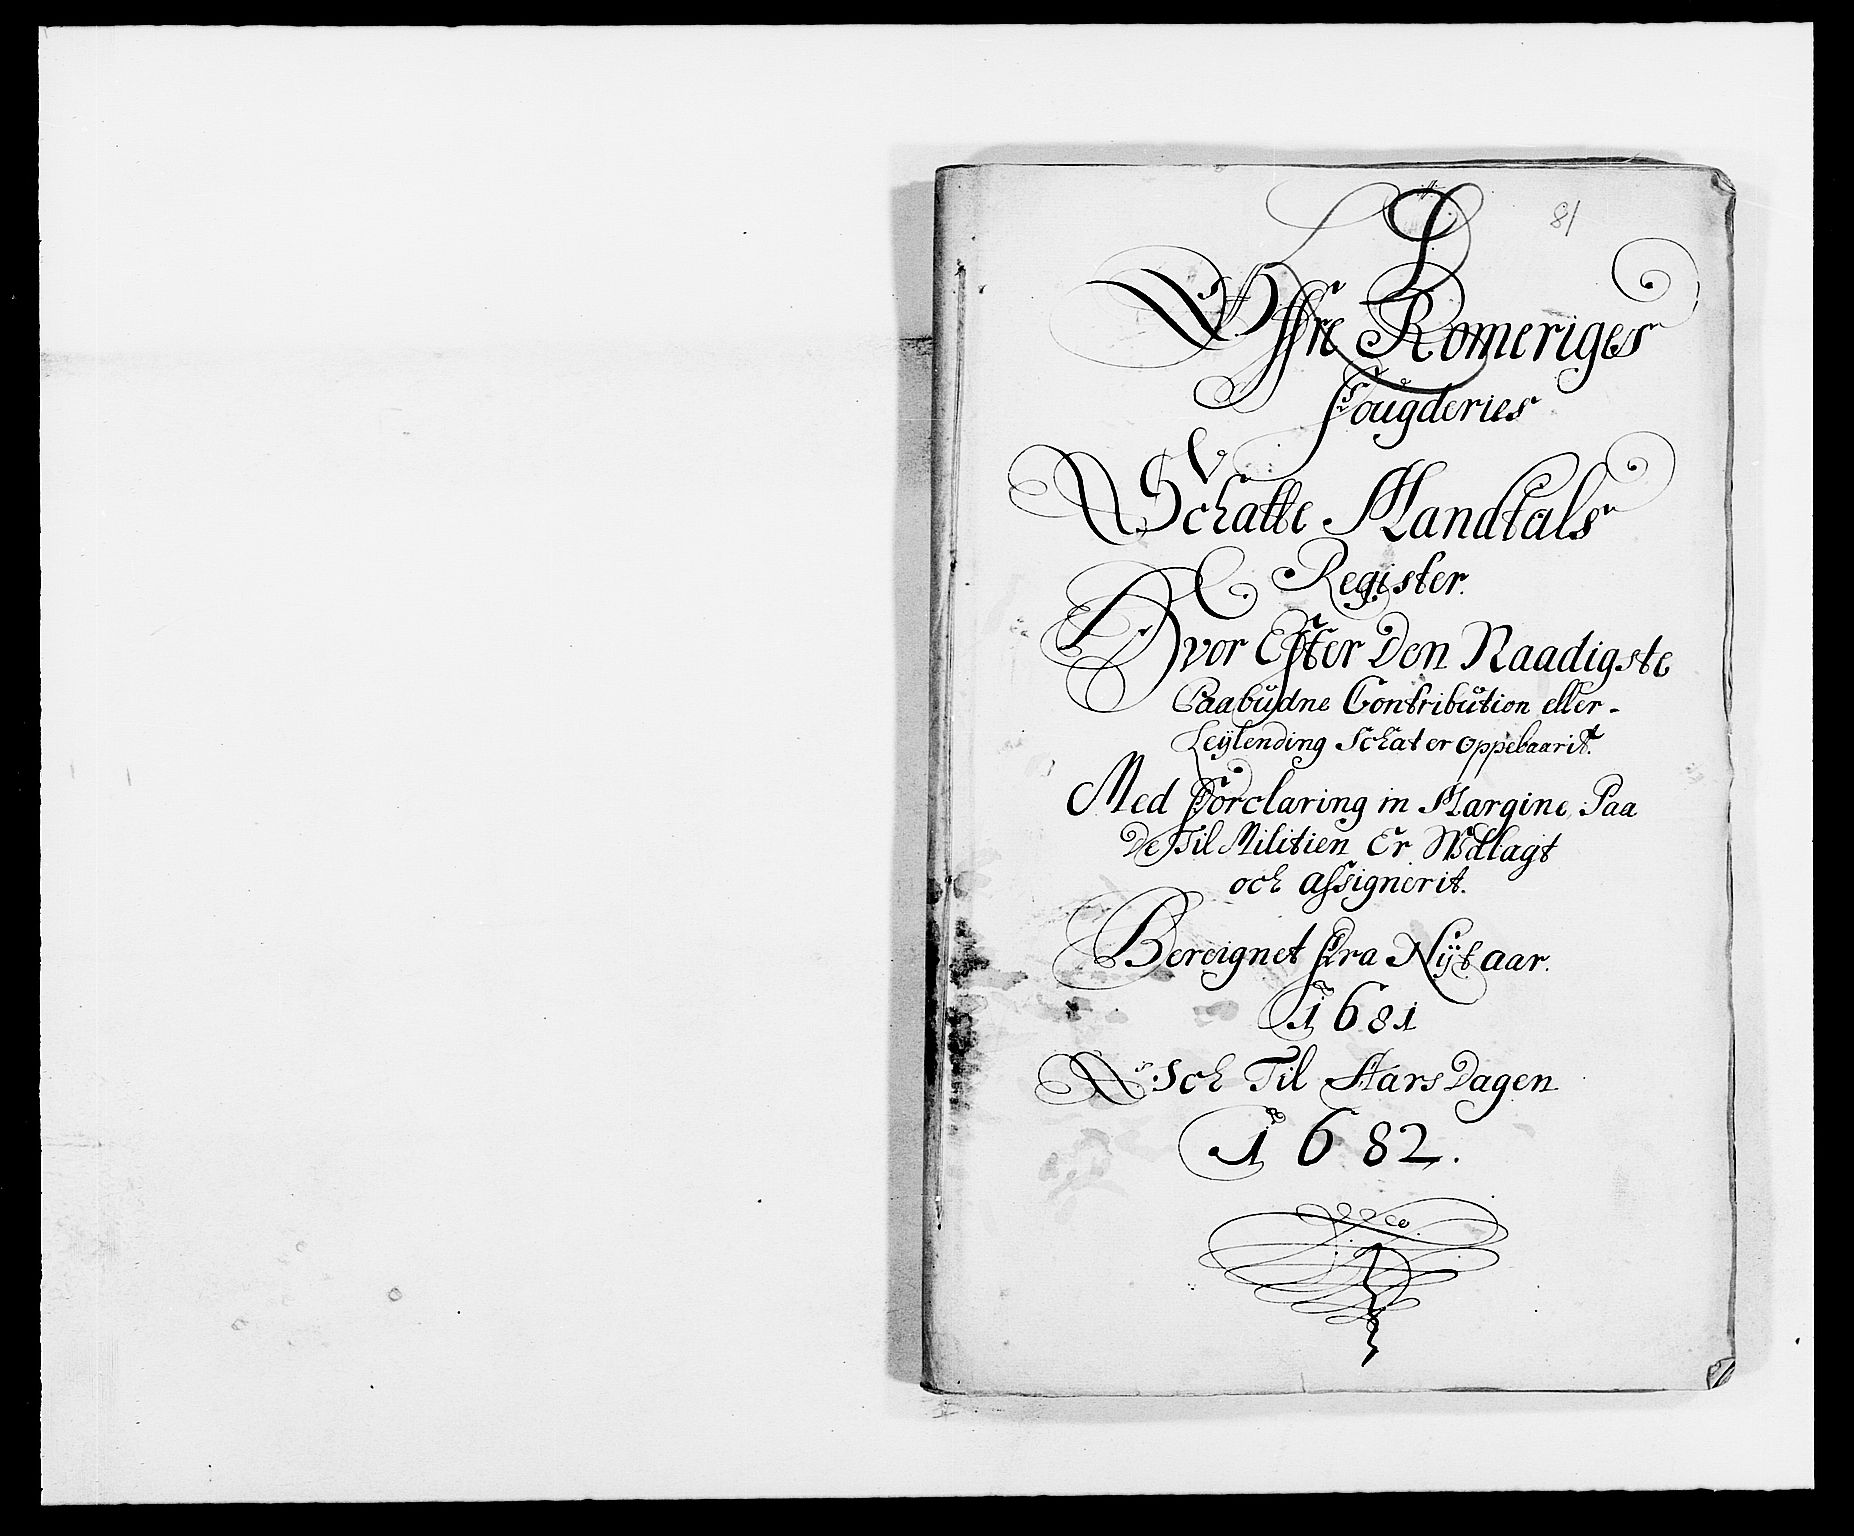 81
Öffre Romeriges
Fougderies
Schatte Mandtals
Register.
Hvor Effter Den Naadigste
Paabudne Contribution eller
Leylending Schat er oppebaarit.
Med Forclaring in Margine, Paa
De Til Militien Er Udlagt
och assignerit.
Bereignet Fra Nytaar.
1681
Och Til Aars Dagen
1682.